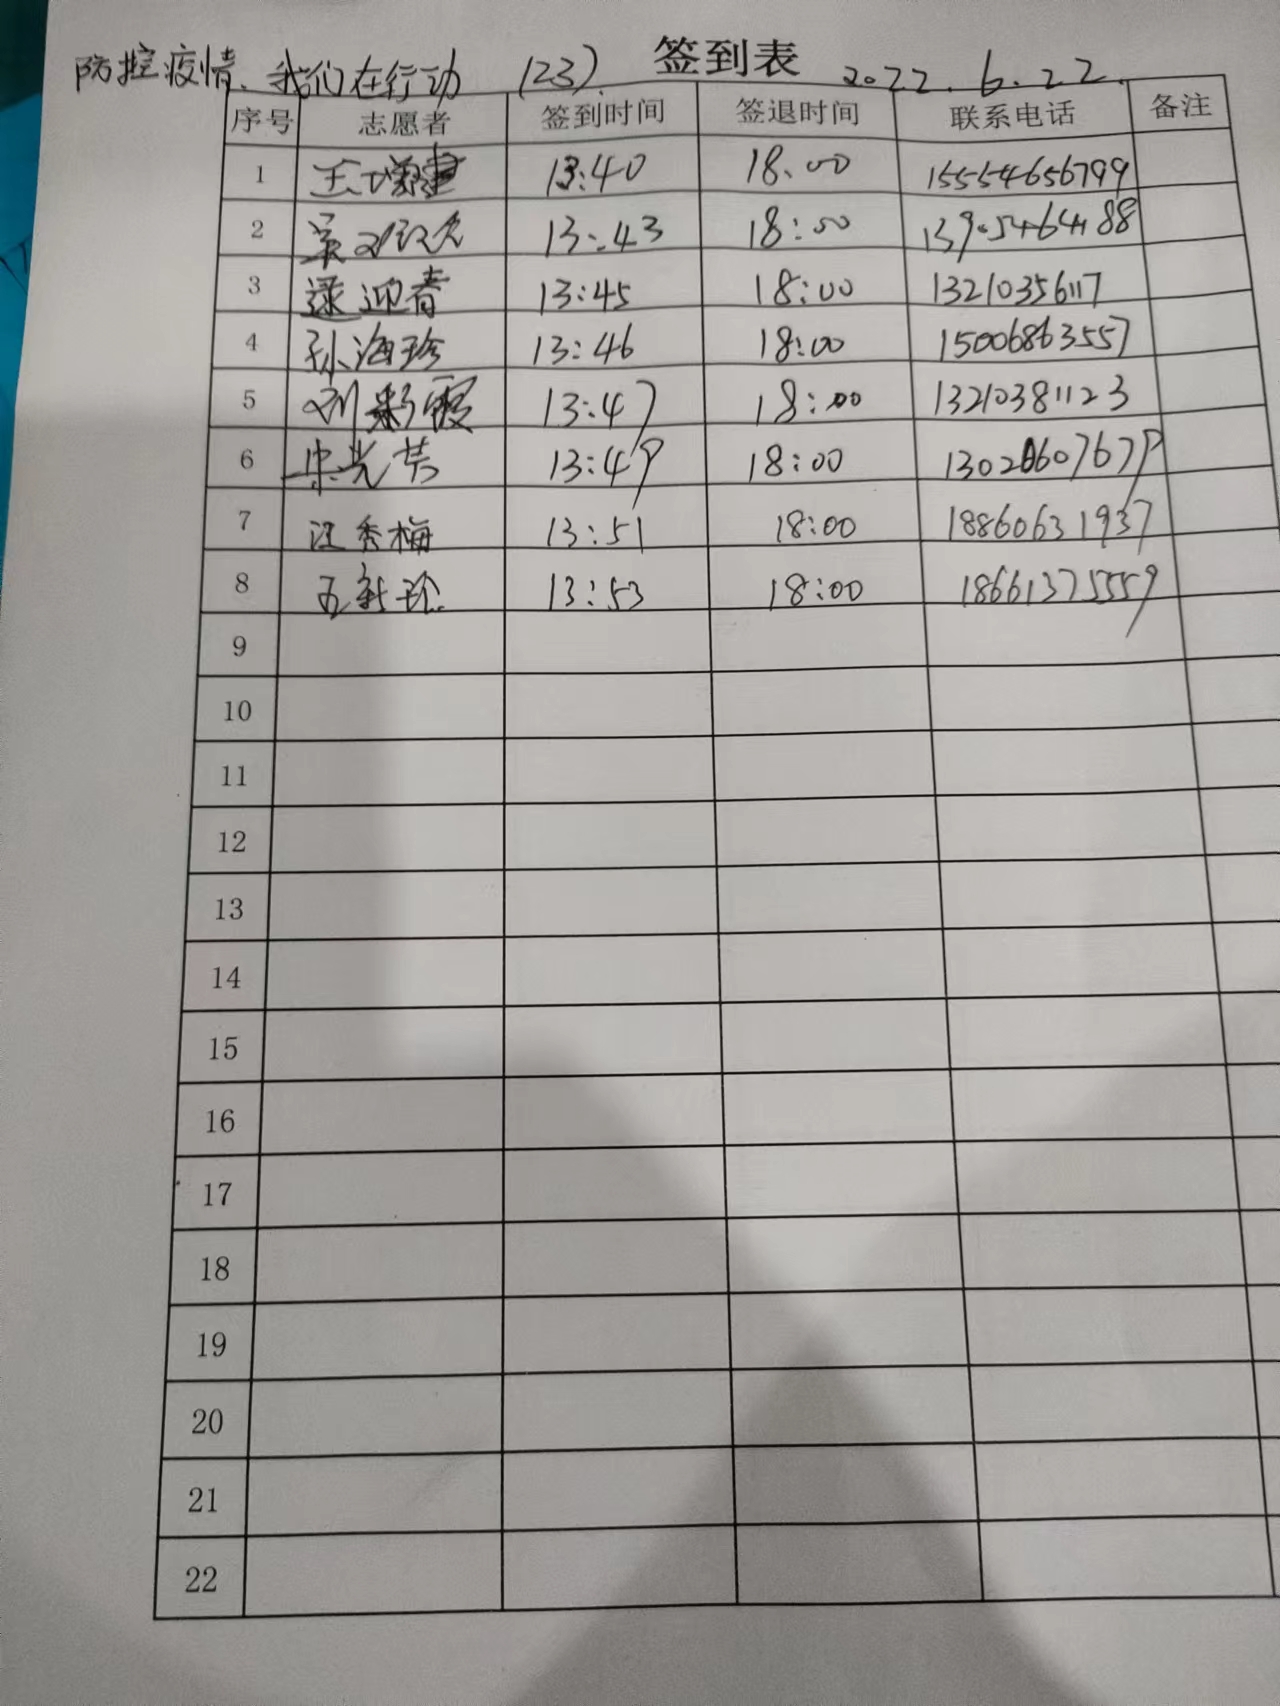 防控疫情、我们在行动 (23) 签到表 2022.6.22.
序号 志愿者 签到时间 签退时间 联系电话 备注
1 13:40 18.00 15554656799
2 13:43 18:00
3 逯迎春 13:45 18:00 13210356117
4 孙海珍 13:46 18:00 15006863557
5 刘彩霞 13:47 18:00 13210381123
6 13:49 18:00
7 汪秀梅 13:51 18:00 18860631937
8 13:53 18:00 18661375559
9
10
11
12
13
14
15
16
17
18
19
20
21
22